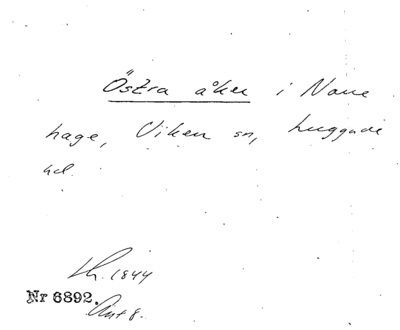 Östra åker i Norre
hage, Viken sn, huggade
hd.
Lh. 1844
Nr 6892.
Ant 8.